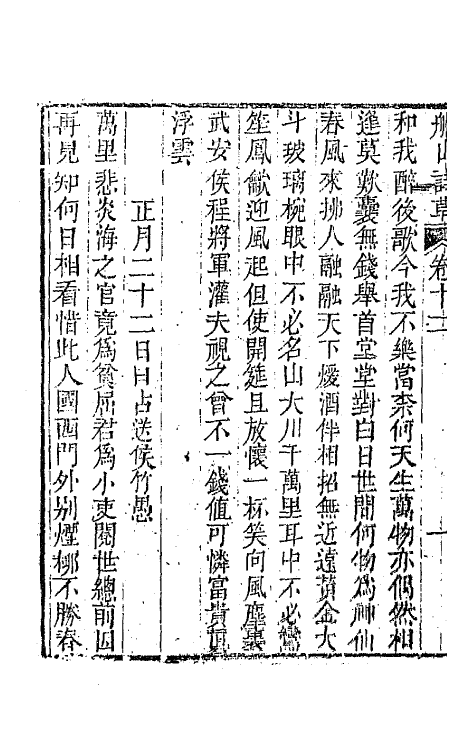 船山詩草 卷十二
和我醉後歌今我不樂當奈何天生萬物亦偶然相
逢莫歎囊無錢舉首堂堂對白日世間何物爲神仙
春風來拂人融融天下煖酒伴相招無近遠黃金大
斗玻璃椀眼中不必名山大川千萬里耳中不必鸞
笙鳳龡迎風起但使開筵且放懷一杯笑向風塵裏
武安侯程將軍灌夫視之曾不一錢值可憐富貴眞
浮雲
正月二十二日口占送侯竹愚
萬里悲炎海之官竟爲貧屈君爲小吏閱世總前因
再見知何日相看惜此人國西門外别煙柳不勝春